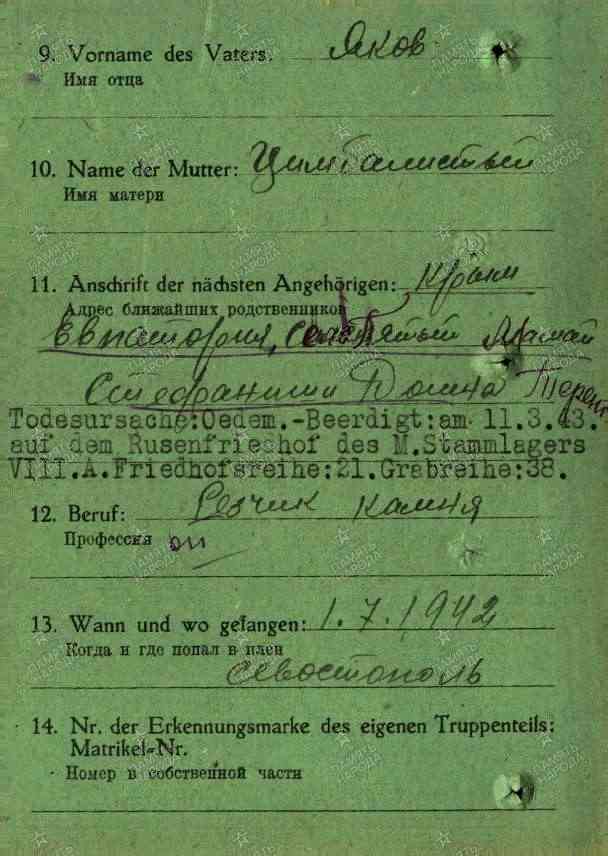 9. Vorname des Vaters: Яков
Имя отца
10. Name der Mutter: Цимбалистый
Имя матери
11. Anschrift der nächsten Angehörigen: Крым
Адрес ближайших родственников
Евпатория, Мамай
Стефаниши Домна
Todesursache:Oedem.-Beerdigt:am 11.3.43.
auf dem Rusenfriedhof des M.Stammlagers
VIII.A.Friedhofsreihe:21.Grabreihe:38.
12. Beruf: Резчик камня
Профессия
13. Wann und wo gefangen: 1.7.1942
Когда и где попал в плен
Севостополь
14. Nr. der Erkennungsmarke des eigenen Truppenteils:
Matrikel-Nr.
Номер в собственной части